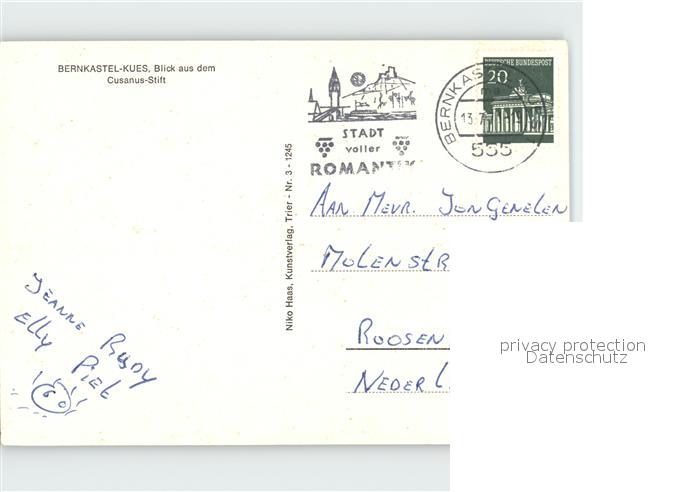 BERNKASTEL-KUES, Blick aus dem
Cusanus-Stift
Niko Haas, Kunstverlag, Trier - Nr. 3 - 1245
STADT
voller
ROMANTIK
BERNKAS
13.7.
555
DEUTSCHE BUNDESPOST
20
AAN MEVR. JONGENELEN
MOLENSTR
ROOSEN
NEDERL.
JEANNE RUDY
ELLY PIET
60
privacy protection
Datenschutz